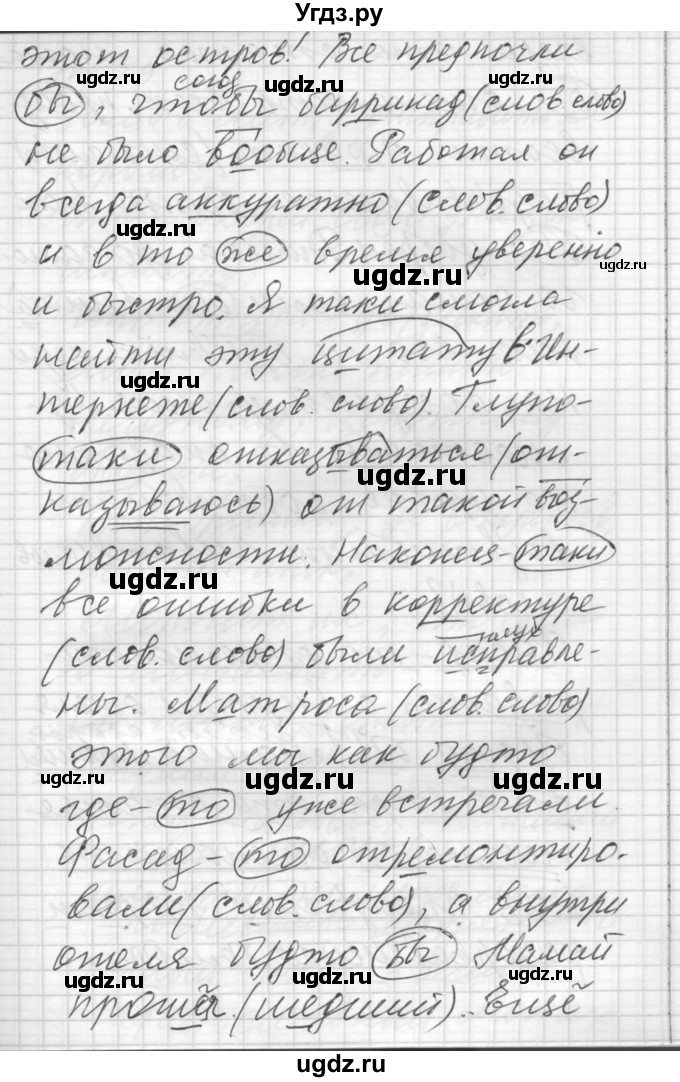 Угдз.ру
этот остров! Все предпочли
союз
бы, чтобы баррикад (слов. слово)
не было вообще. Работал он
всегда аккуратно (слов. слово)
и в то же время уверенно
и быстро. Я таки смогла
найти эту цитату в Ин-
тернете (слов. слово). Глупо-
таки отказываться (от-
казываюсь) от такой воз-
можности. Наконец-таки
все ошибки в корректуре
(слов. слово) были исправле-
ны. Матроса (слов. слово)
этого мы как будто
где-то уже встречали.
Фасад-то отремонтиро-
вали (слов. слово), а внутри
отеля будто бы Мамай
прошёл (шедший). Ещё
ugdz.ru